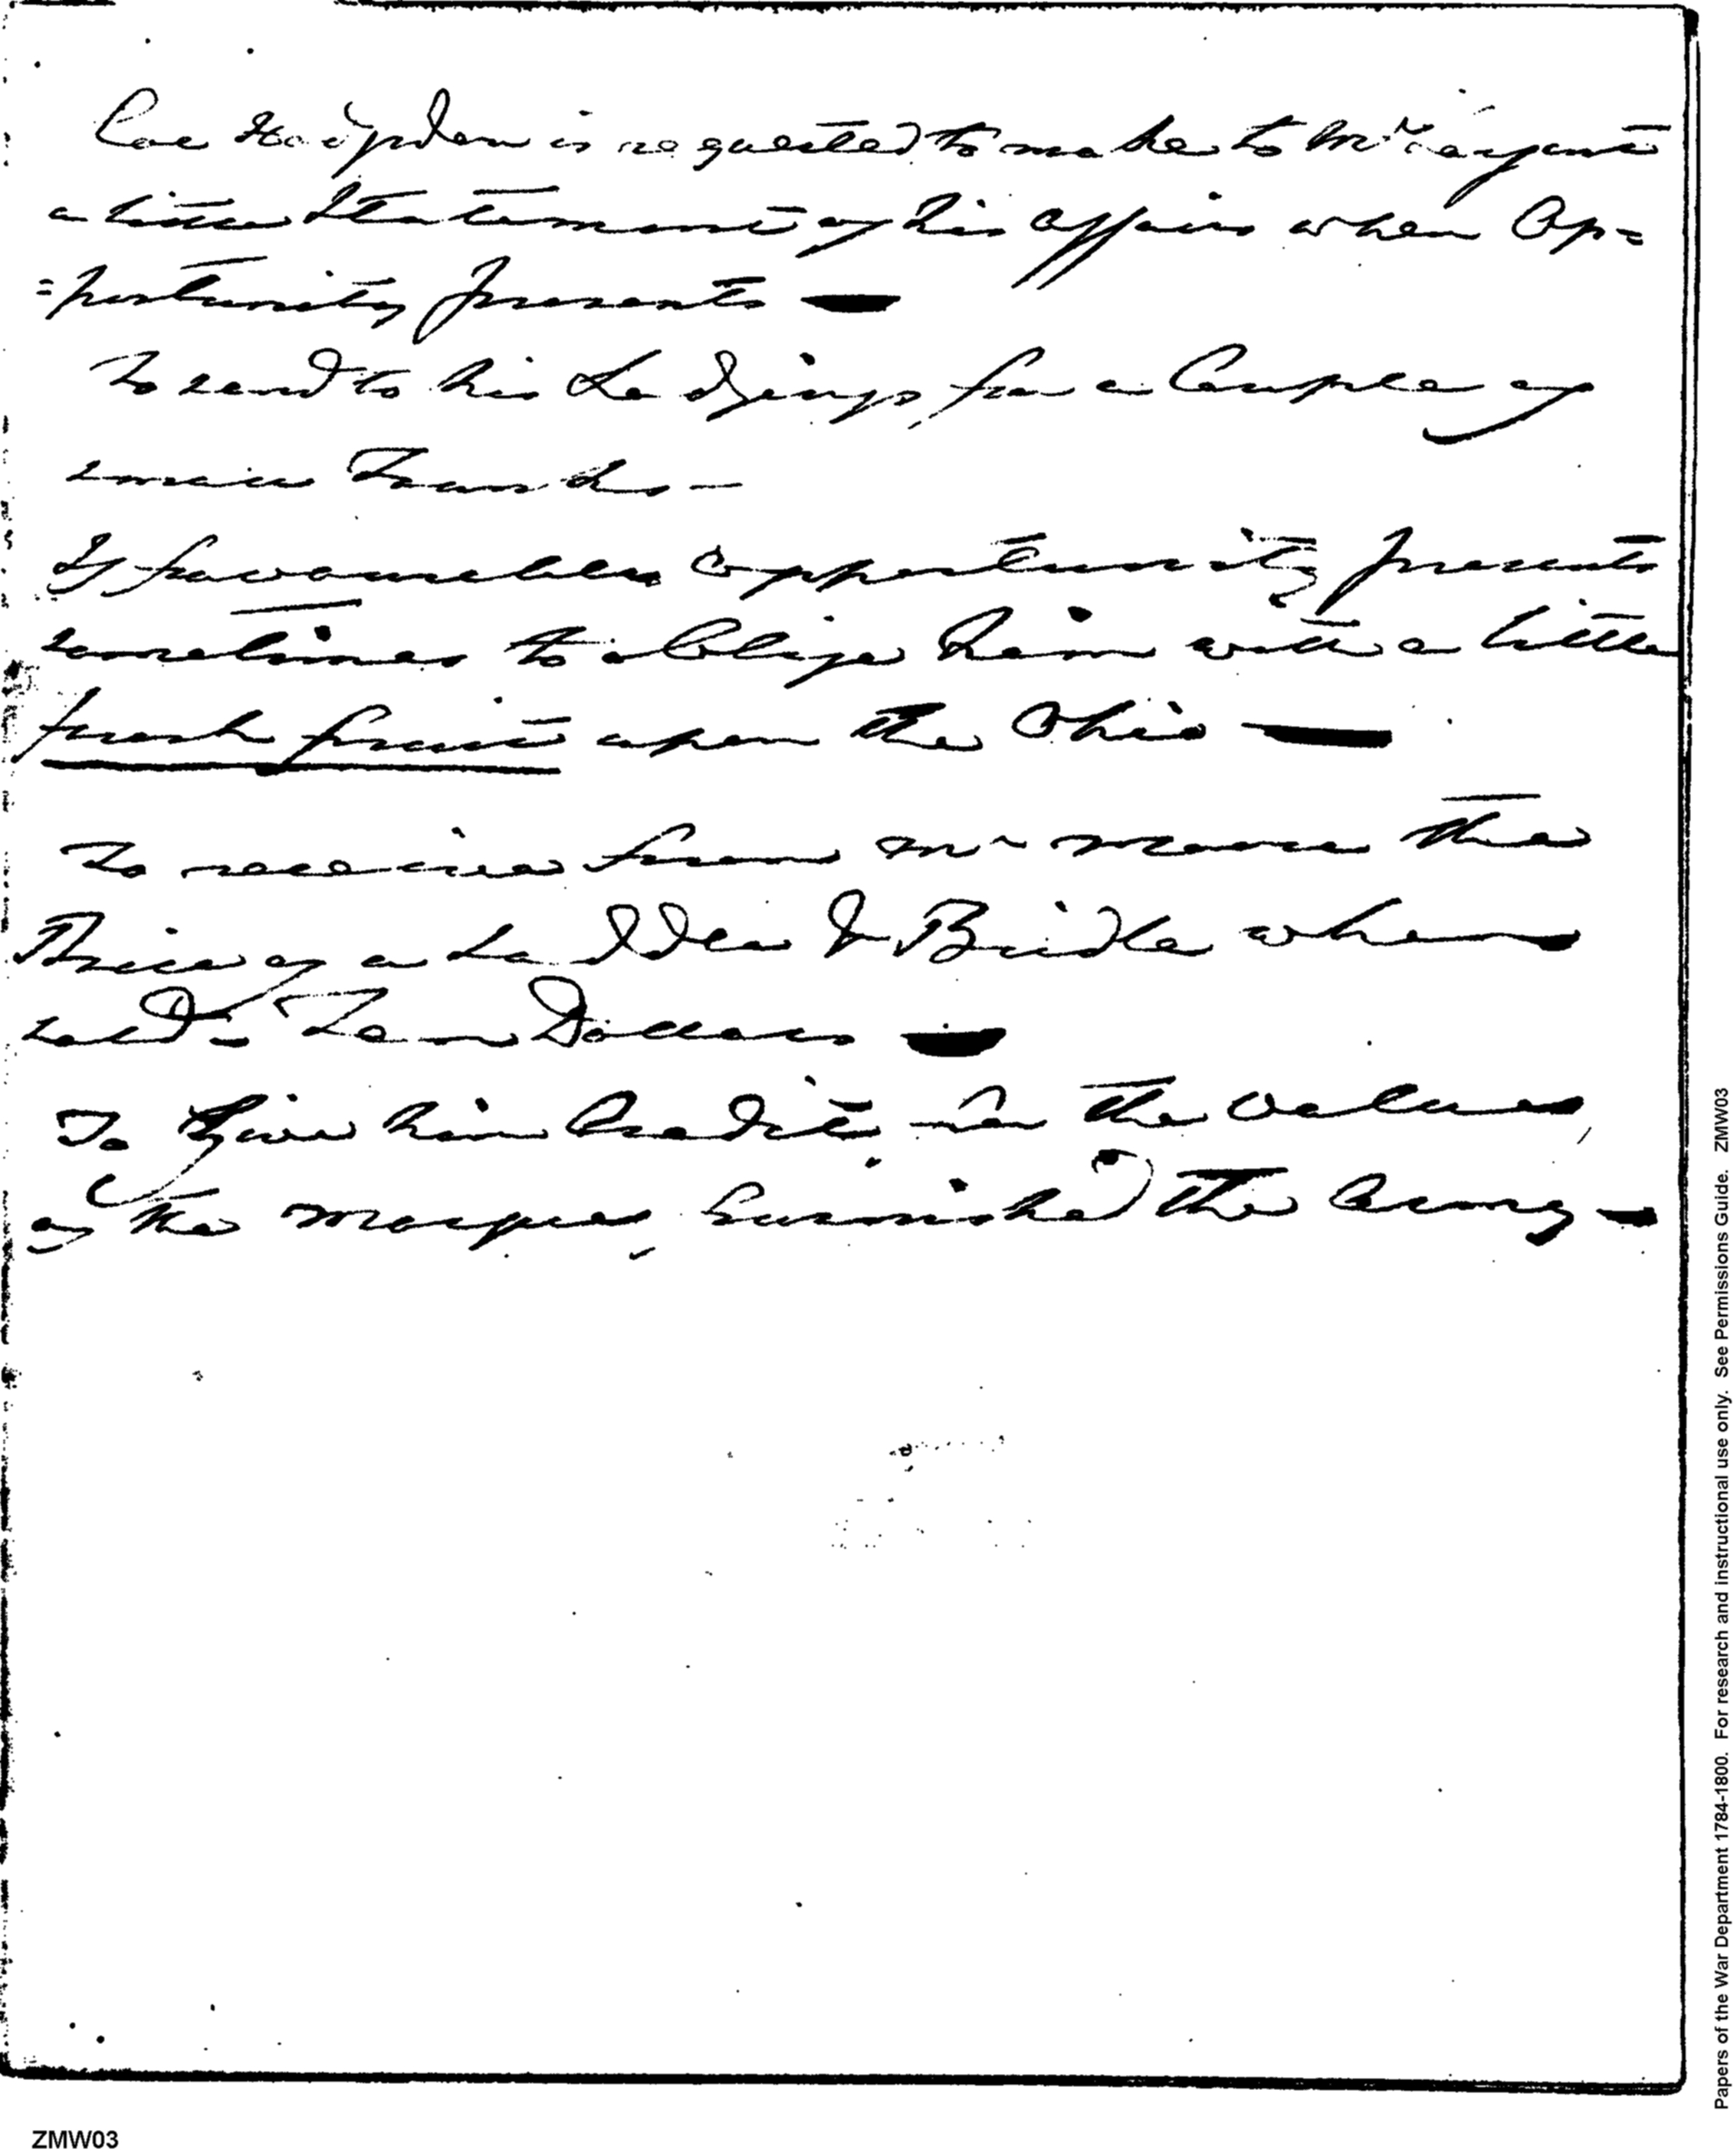 Col is requested to make to Mr
a little Statement of his affairs when Op=
=portunity presents —
To send to his Lodgings for a Couple of
small Trunks —
If favourable opportunity presents
sometimes to oblige him with a little
fresh fruit upon the Ohio —
To receive from Mr Moore the
Price of a Saddle & Bridle when
sold - Ten Dollars —
To Give him Credit for the value,
of the furnished the Army —
Papers of the War Department 1784-1800. For research and instructional use only. See Permissions Guide. ZMW03
ZMW03